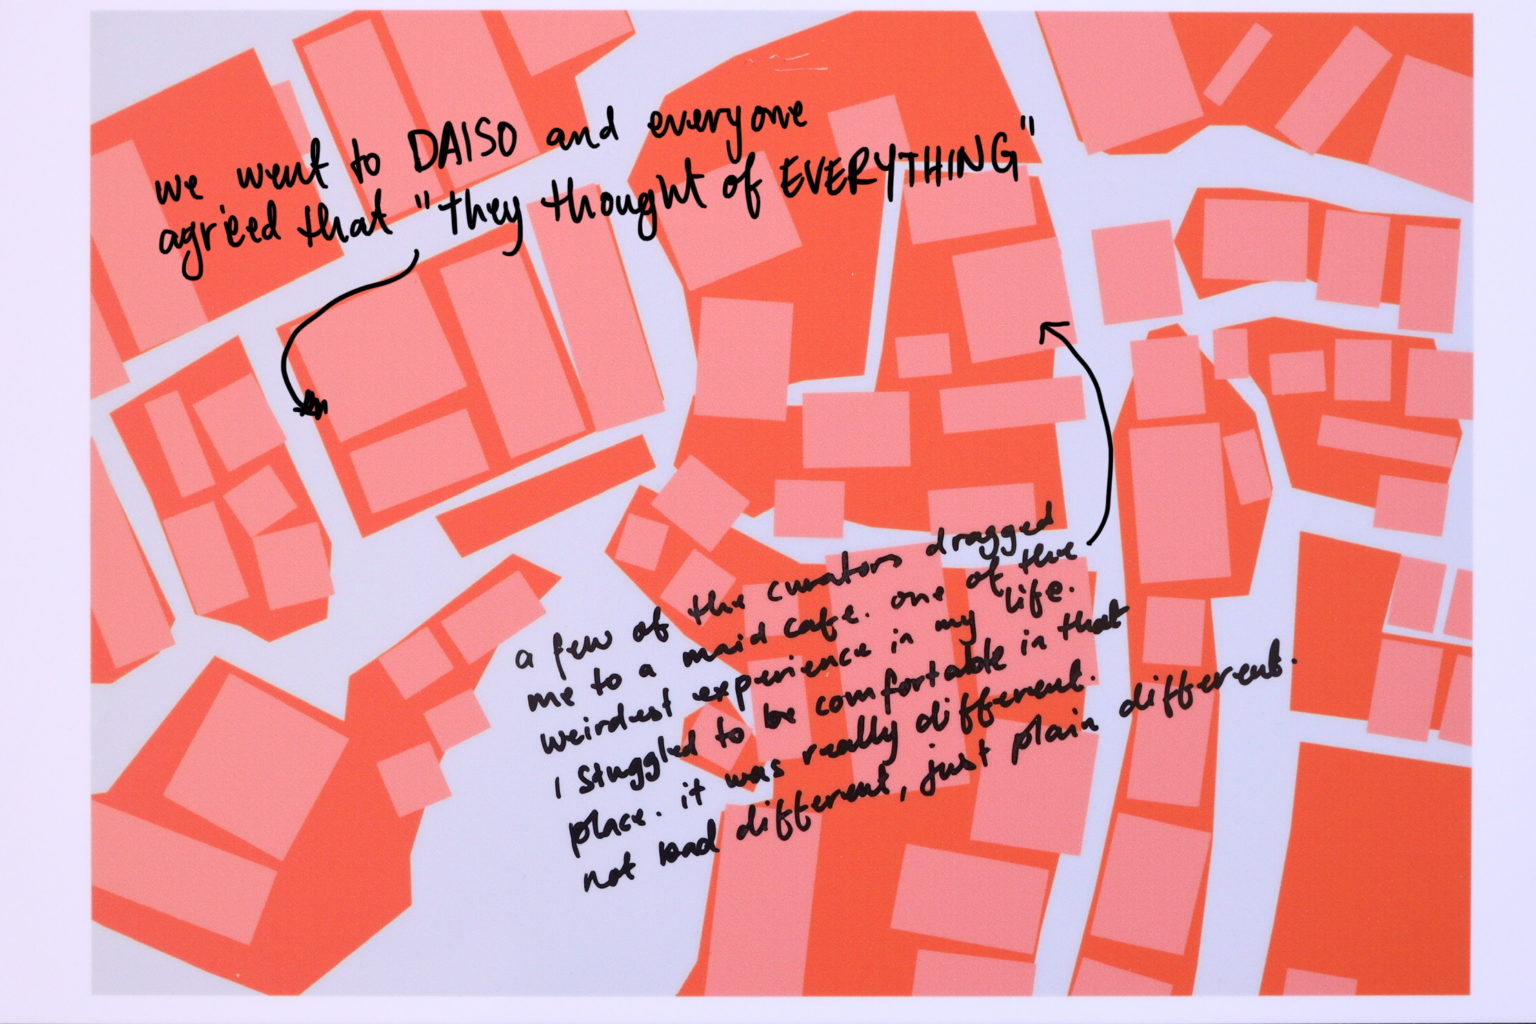 we went to DAISO and everyone
agreed that "they thought of EVERYTHING"
a few of the curators dragged
me to a maid cafe. one of the
weirdest experience in my life.
I stuggled to be comfortable in that
place. it was really different.
not bad different, just plain different.